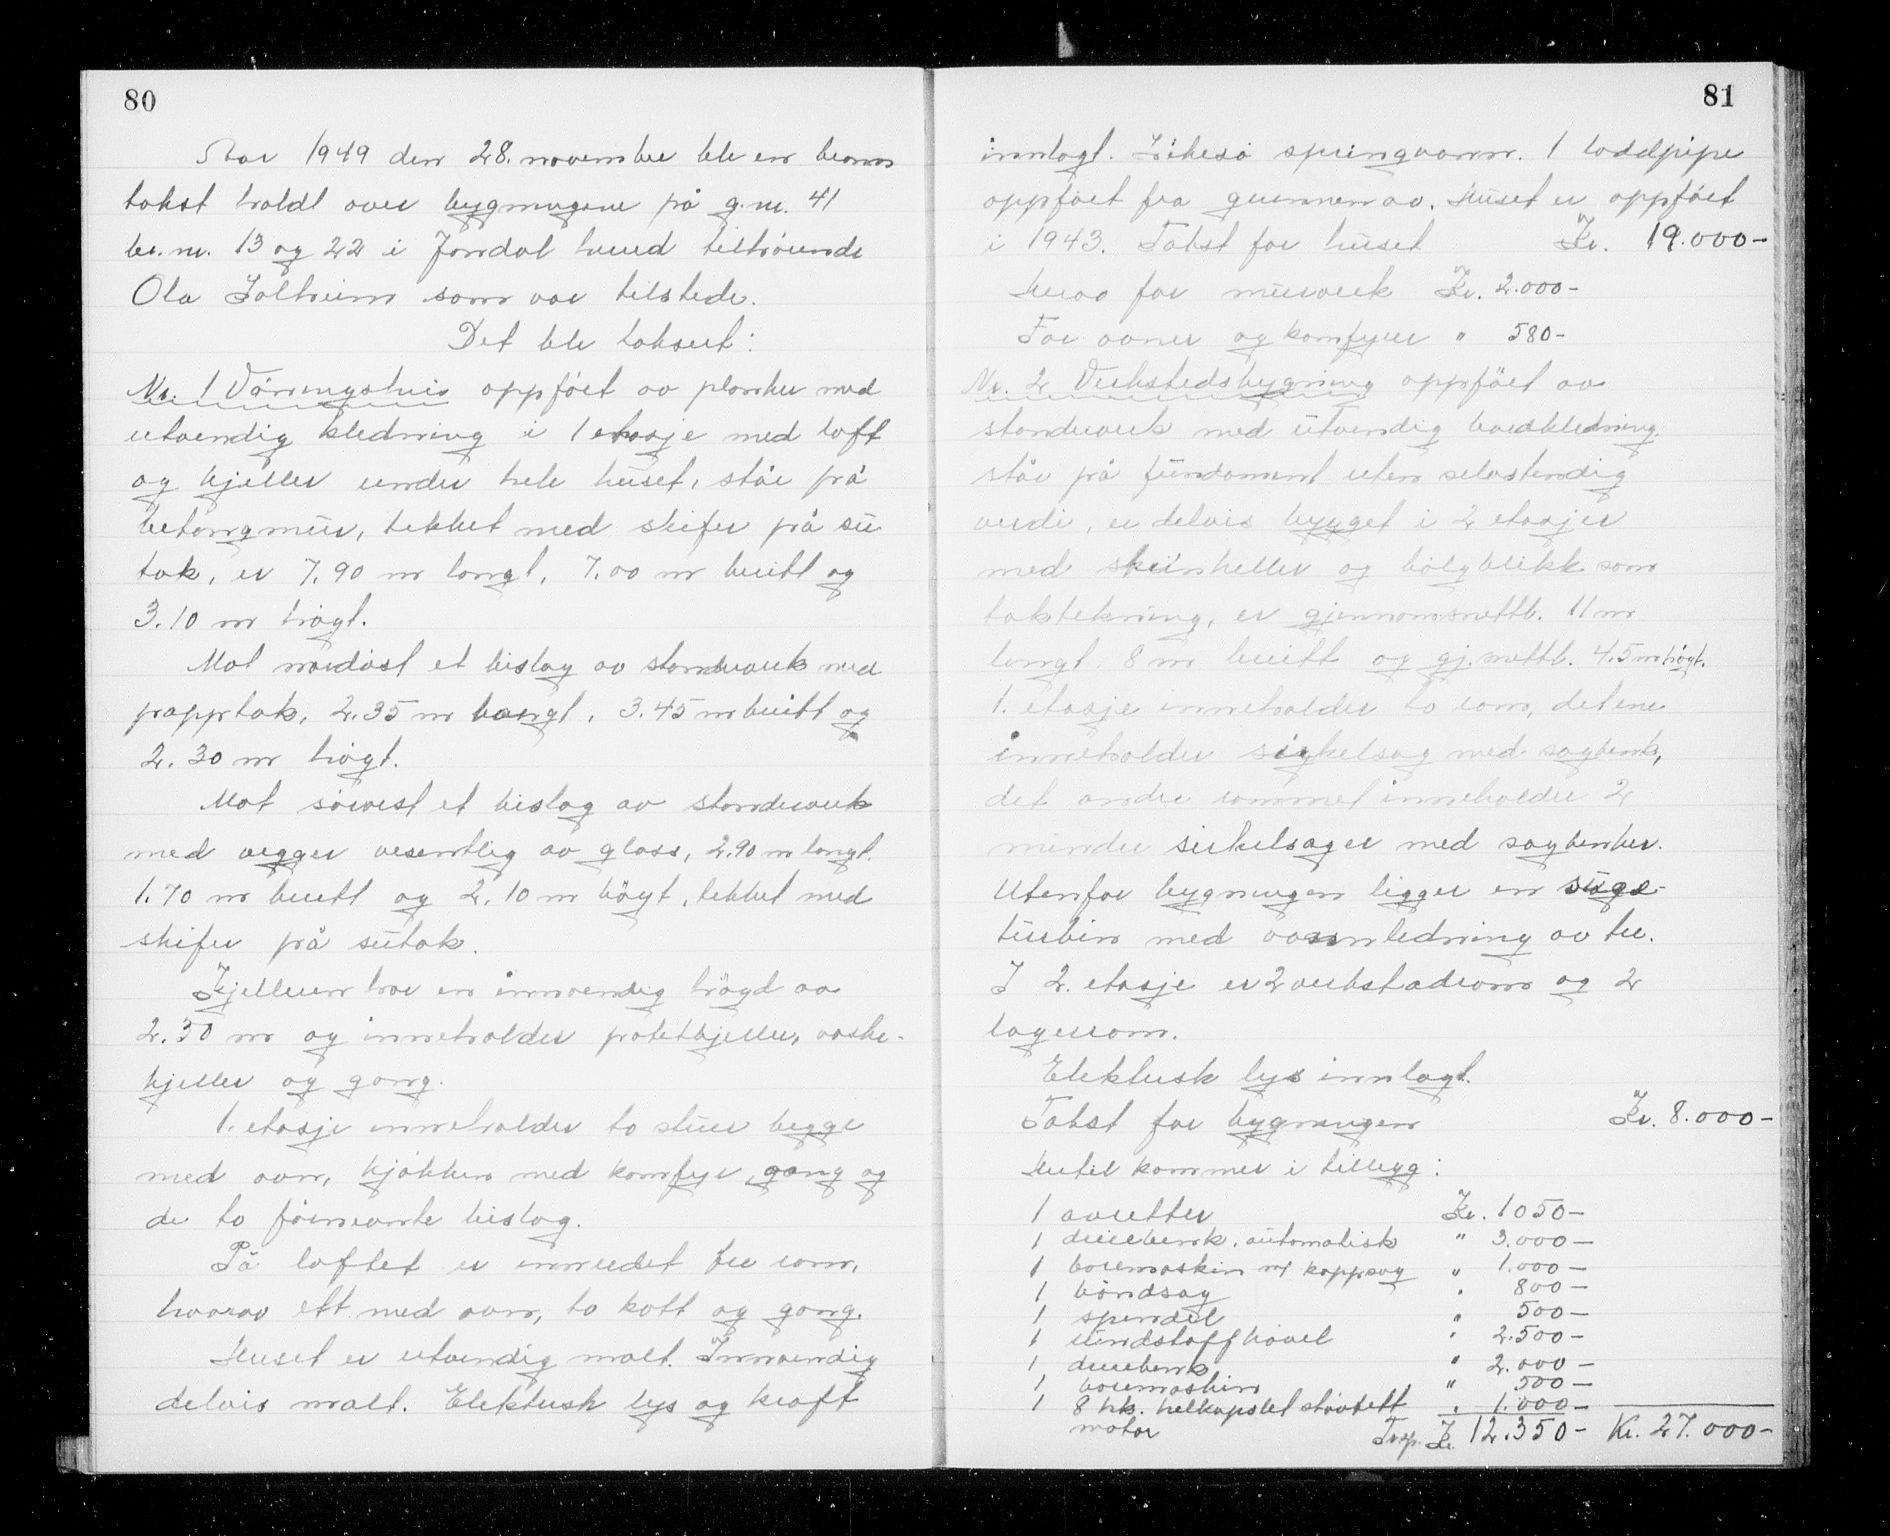 80
Aar 1949 den 28. november ble en brann
takst holdt over bygningene på g.nr. 41
br.nr. 13 og 22 i Jondal herred tilhørende
Ola Solheim som var tilstede.
Det ble taksert:
Nr. 1 Våningshus oppført av planker med
utvendig kledning i 1 etasje med loft
og kjeller under hele huset, står på
betongmur, tekket med skifer på su
tak, er 7.90 m langt, 7.00 m breitt og
3.10 m høgt.
Mot nordøst et bislag av standverk med
papptak, 2.35 m langt, 3.45 m breitt og
2.30 m høgt.
Mot sørvest et bislag av standverk
med vegger vesentlig av glass, 2.90 m langt.
1.70 m breitt og 2.10 m høgt, tekket med
skifer på sutak.
Kjelleren har en innvendig høgd av
2.30 m og inneholder potetkjeller, vaske-
kjeller og gang.
1. etasje inneholder to stuer begge
med ovn, kjøkken med komfyr, gang og
de to førnevnte bislag.
På loftet er innredet tre rom,
hvorav ett med ovn, to kott og gang.
Huset er utvendig malt. Innvendig
delvis malt. Elektrisk lys og kraft
81
innlagt. Likeså springvann. 1 loddpipe
oppført fra grunnen av. Huset er oppført
i 1943. Takst for huset Kr. 19.000-
Herav for murverk Kr. 2.000-
For ovner og komfyrer " 580-
Nr. 2 Verkstedsbygning oppført av
standverk med utvendig bordkledning.
står på fundament uten selvstendig
verdi, er delvis bygget i 2 etasjer
med skiinheller og bølgblikk som
taktekning, er gjennomsnittl. 11 m
langt 8 m breitt og gj.snittl. 4.5 m høgt.
1. etasje inneholder to rom, det ene
inneholder sirkelsag med sagbenk,
det andre rommet inneholder 2
mindre sirkelsager med sagbenker.
Utenfor bygningen ligger en suge-
turbin med vannledning av tre.
I 2. etasje er 2 verkstadrom og 2
lagerrom.
Elektrisk lys innlagt.
Takst for bygningen Kr. 8.000-
Hertil kommer i tillegg:
1 avretter Kr. 1050-
1 dreiebenk, automatisk " 3.000-
1 boremaskin m/ kappsag " 1.000-
1 båndsag " 800-
1 spindel " 500-
1 rundstaffhøvel " 2.500-
1 dreiebenk " 2.000-
1 boremaskin " 500-
1 8 hk. helkapslet støvtett " 1.000-
motor Trsp. Kr. 12.350- Kr. 27.000-